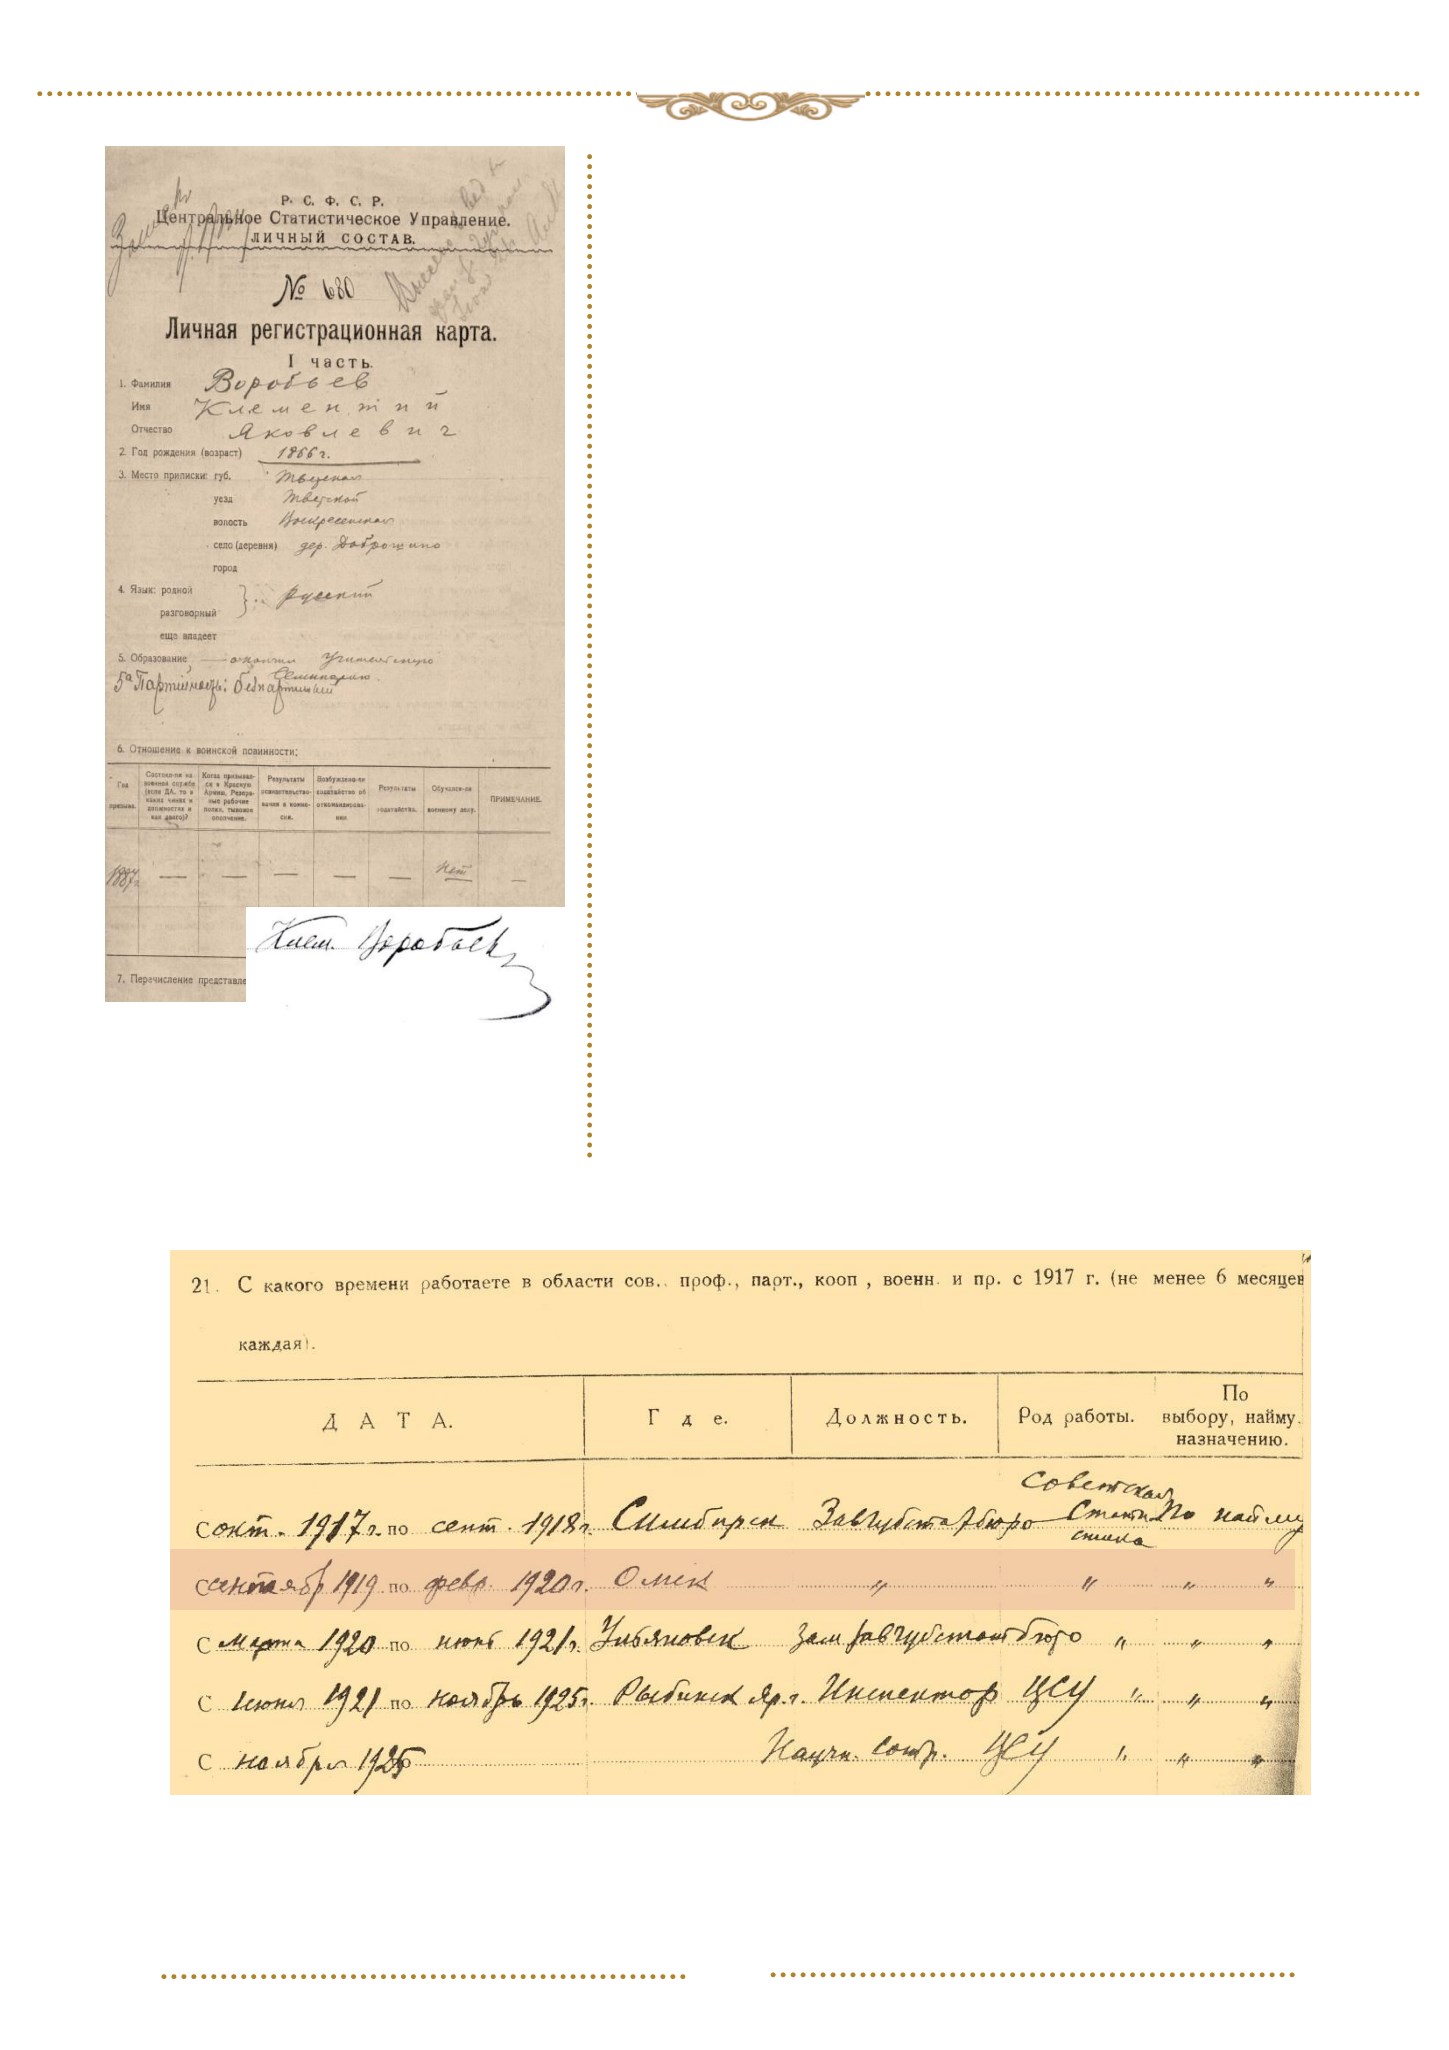 Р. С. Ф. С. Р.
Центральное Статистическое Управление.
ЛИЧНЫЙ СОСТАВ.
№ 680
Личная регистрационная карта.
I часть.
1. Фамилия Воробьев
Имя Клементий
Отчество Яковлевич
2. Год рождения (возраст) 1866 г.
3. Место приписки: губ. Тверская
уезд Тверской
волость Воскресенская
село (деревня) дер. Доброшино
город
4. Язык: родной
разговорный русский
еще владеет
5. Образование окончил Учительскую
Семинарию.
5а Партийность: беспартийный
6. Отношение к воинской повинности:
Год призыва.
Состоял-ли на военной службе (если ДА, то в каких чинах и должностях и как давно)?
Когда призывался в Красную Армию, Резервные рабочие полки, тыловое ополчение.
Результаты освидетельствования в комиссии.
Возбуждали-ли ходатайство об откомандировании.
Результаты ходатайства.
Обучался-ли военному делу.
ПРИМЕЧАНИЕ.
1887 г. — — — — — Нет —
7. Перечисление представле
Клем. Воробьев
21. С какого времени работаете в области сов., проф., парт., кооп., военн. и пр. с 1917 г. (не менее 6 месяцев
каждая).
ДАТА. Где. Должность. Род работы. По выбору, найму. назначению.
С окт. 1917 г. по сент. 1918 г. Симбирск Завгубстатбюро Советская Статистика По найму
С сентябр 1919 по февр. 1920 г. Омск " " " "
С марта 1920 по июнь 1921 г. Ульяновск зам завгубстатбюро " " "
С июня 1921 по ноябрь 1925 г. Рыбинск Яр. г. Инспектор ЦСУ " " "
С ноября 1925 Научн. сотр. ЦСУ " " "